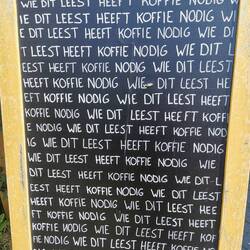 WIE DIT LEEST HEEFT KOFFIE NODIG W
IE DIT LEEST HEEFT KOFFIE NODIG WI
T LEEST HEEFT KOFFIE NODIG WIE DIT L
EEST HEEFT KOFFIE NODIG WIE DIT LEEST
HEEFT KOFFIE NODIG WIE DIT LEEST HE
EFT KOFFIE NODIG WIE DIT LEEST HEEFT
KOFFIE NODIG WIE DIT LEEST HEEFT KOFFI
E NODIG WIE DIT LEEST HEEFT KOFFIE NOD
IG WIE DIT LEEST HEEFT KOFFIE NODIG
WIE DIT LEEST HEEFT KOFFIE NODIG
WIE DIT LEEST HEEFT KOFFIE NODIG WIE DIT L
EEST HEEFT KOFFIE NODIG WIE DIT LEEST
HEEFT KOFFIE NODIG WIE DIT LEEST HEE
FT KOFFIE NODIG WIE DIT LEEST HEEFT
KOFFIE NODIG WIE DIT LEEST HEEFT KOF
FIE NODIG WIE DIT LEEST HEEFT KOFFIE